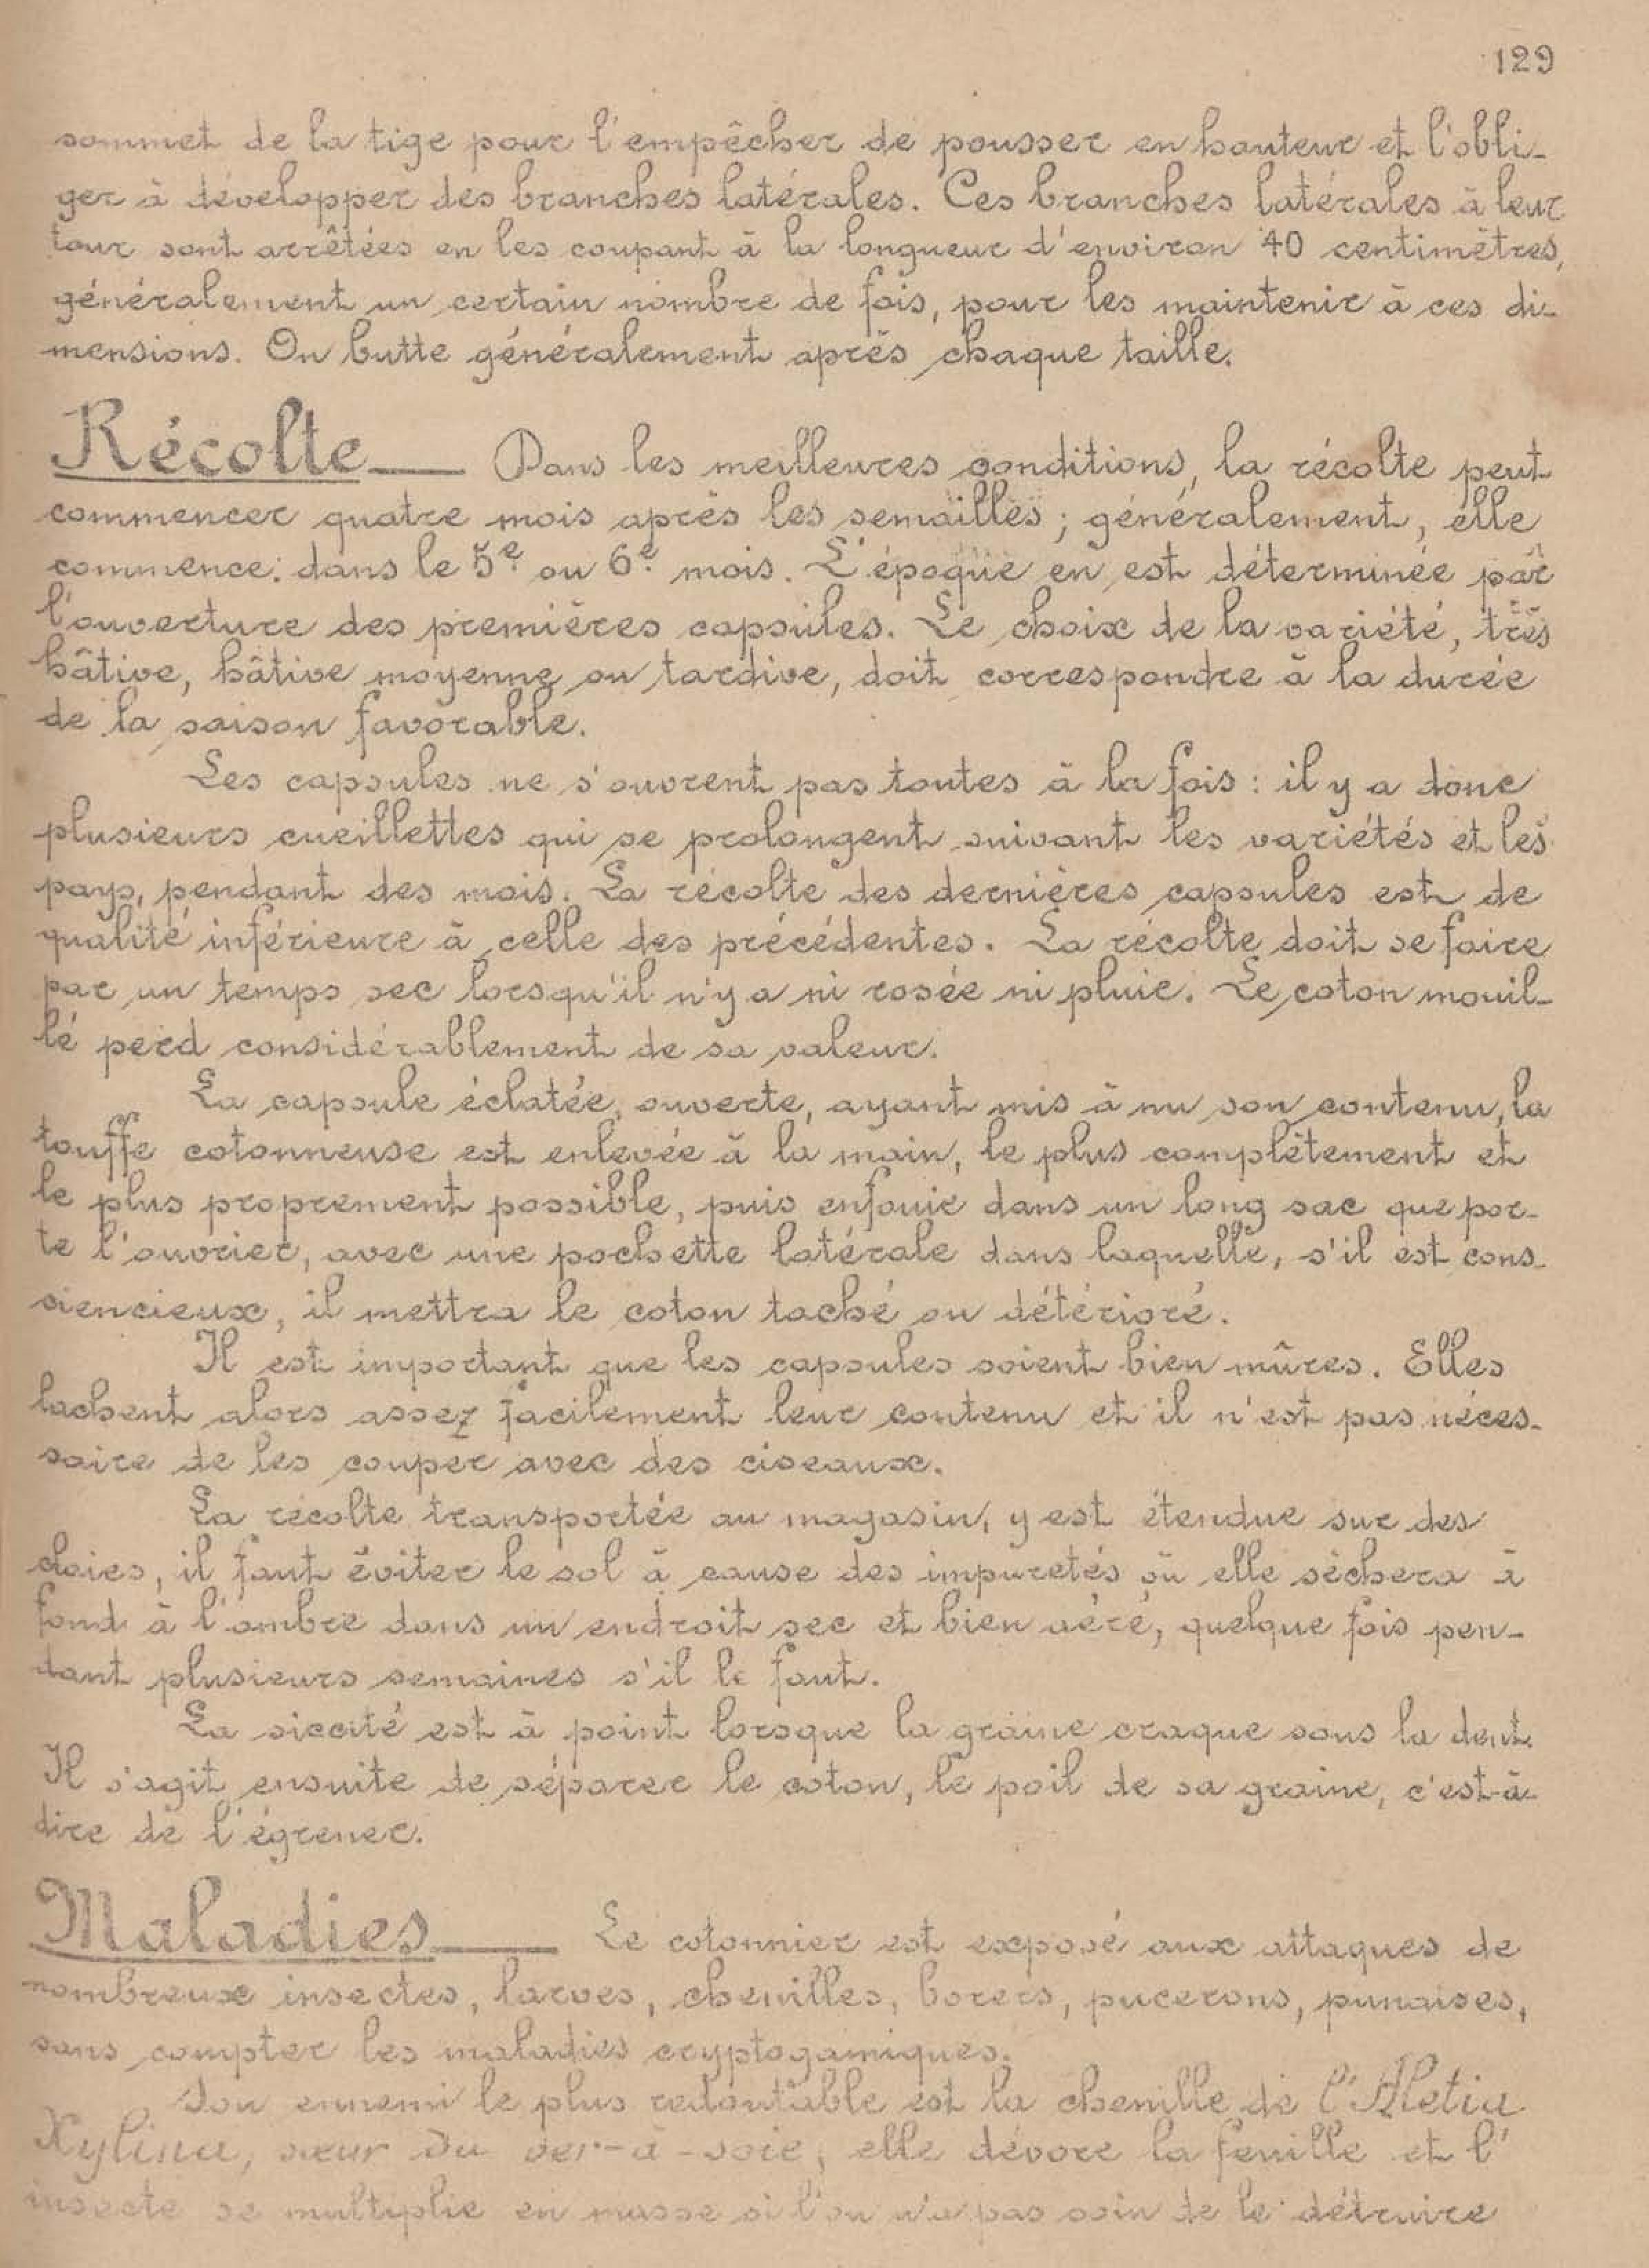 129
sommet de la tige pour l'empêcher de pousser en hauteur et l'obli-
ger à développer des branches latérales. Ces branches latérales à leur
tour sont arrêtées en les coupant à la longueur d'environ 40 centimètres,
généralement un certain nombre de fois, pour les maintenir à ces di-
mensions. On butte généralement après chaque taille.
Récolte — Dans les meilleures conditions, la récolte peut
commencer quatre mois après les semailles ; généralement, elle
commence: dans le 5e ou 6e mois. L'époque en est déterminée par
l'ouverture des premières capsules. Le choix de la variété, très
hâtive, hâtive moyenne ou tardive, doit correspondre à la durée
de la saison favorable.
Les capsules ne s'ouvrent pas toutes à la fois : il y a donc
plusieurs cueillettes qui se prolongent suivant les variétés et les
pays, pendant des mois. La récolte des dernières capsules est de
qualité inférieure à celle des précédentes. La récolte doit se faire
par un temps sec lorsqu'il n'y a ni rosée ni pluie. Le coton mouil-
lé perd considérablement de sa valeur.
La capsule éclatée, ouverte, ayant mis à nu son contenu, la
touffe cotonneuse est enlevée à la main, le plus complètement et
le plus proprement possible, puis enfouie dans un long sac que por-
te l'ouvrier, avec une pochette latérale dans laquelle, s'il est cons-
siencieux, il mettra le coton taché ou détérioré.
Il est important que les capsules soient bien mûres. Elles
lachent alors assez facilement leur contenu et il n'est pas néces-
saire de les couper avec des ciseaux.
La récolte transportée au magasin, y est étendue sur des
claies, il faut éviter le sol à cause des impuretés où elle sèchera à
fond à l'ombre dans un endroit sec et bien aéré, quelque fois pen-
dant plusieurs semaines s'il le faut.
La siccité est à point lorsque la graine craque sous la dent.
Il s'agit ensuite de séparer le coton, le poil de sa graine, c'est-à-
dire de l'égrener.
Maladies — Le cotonnier est exposé aux attaques de
nombreux insectes, larves, chenilles, borers, pucerons, punaises,
sans compter les maladies cryptogamiques.
Son ennemi le plus redoutable est la chenille de l'Aletia
Xylina, sœur du ver-à-soie, elle dévore la feuille et l'
insecte se multiplie en masse si l'on n'a pas soin de le détruire